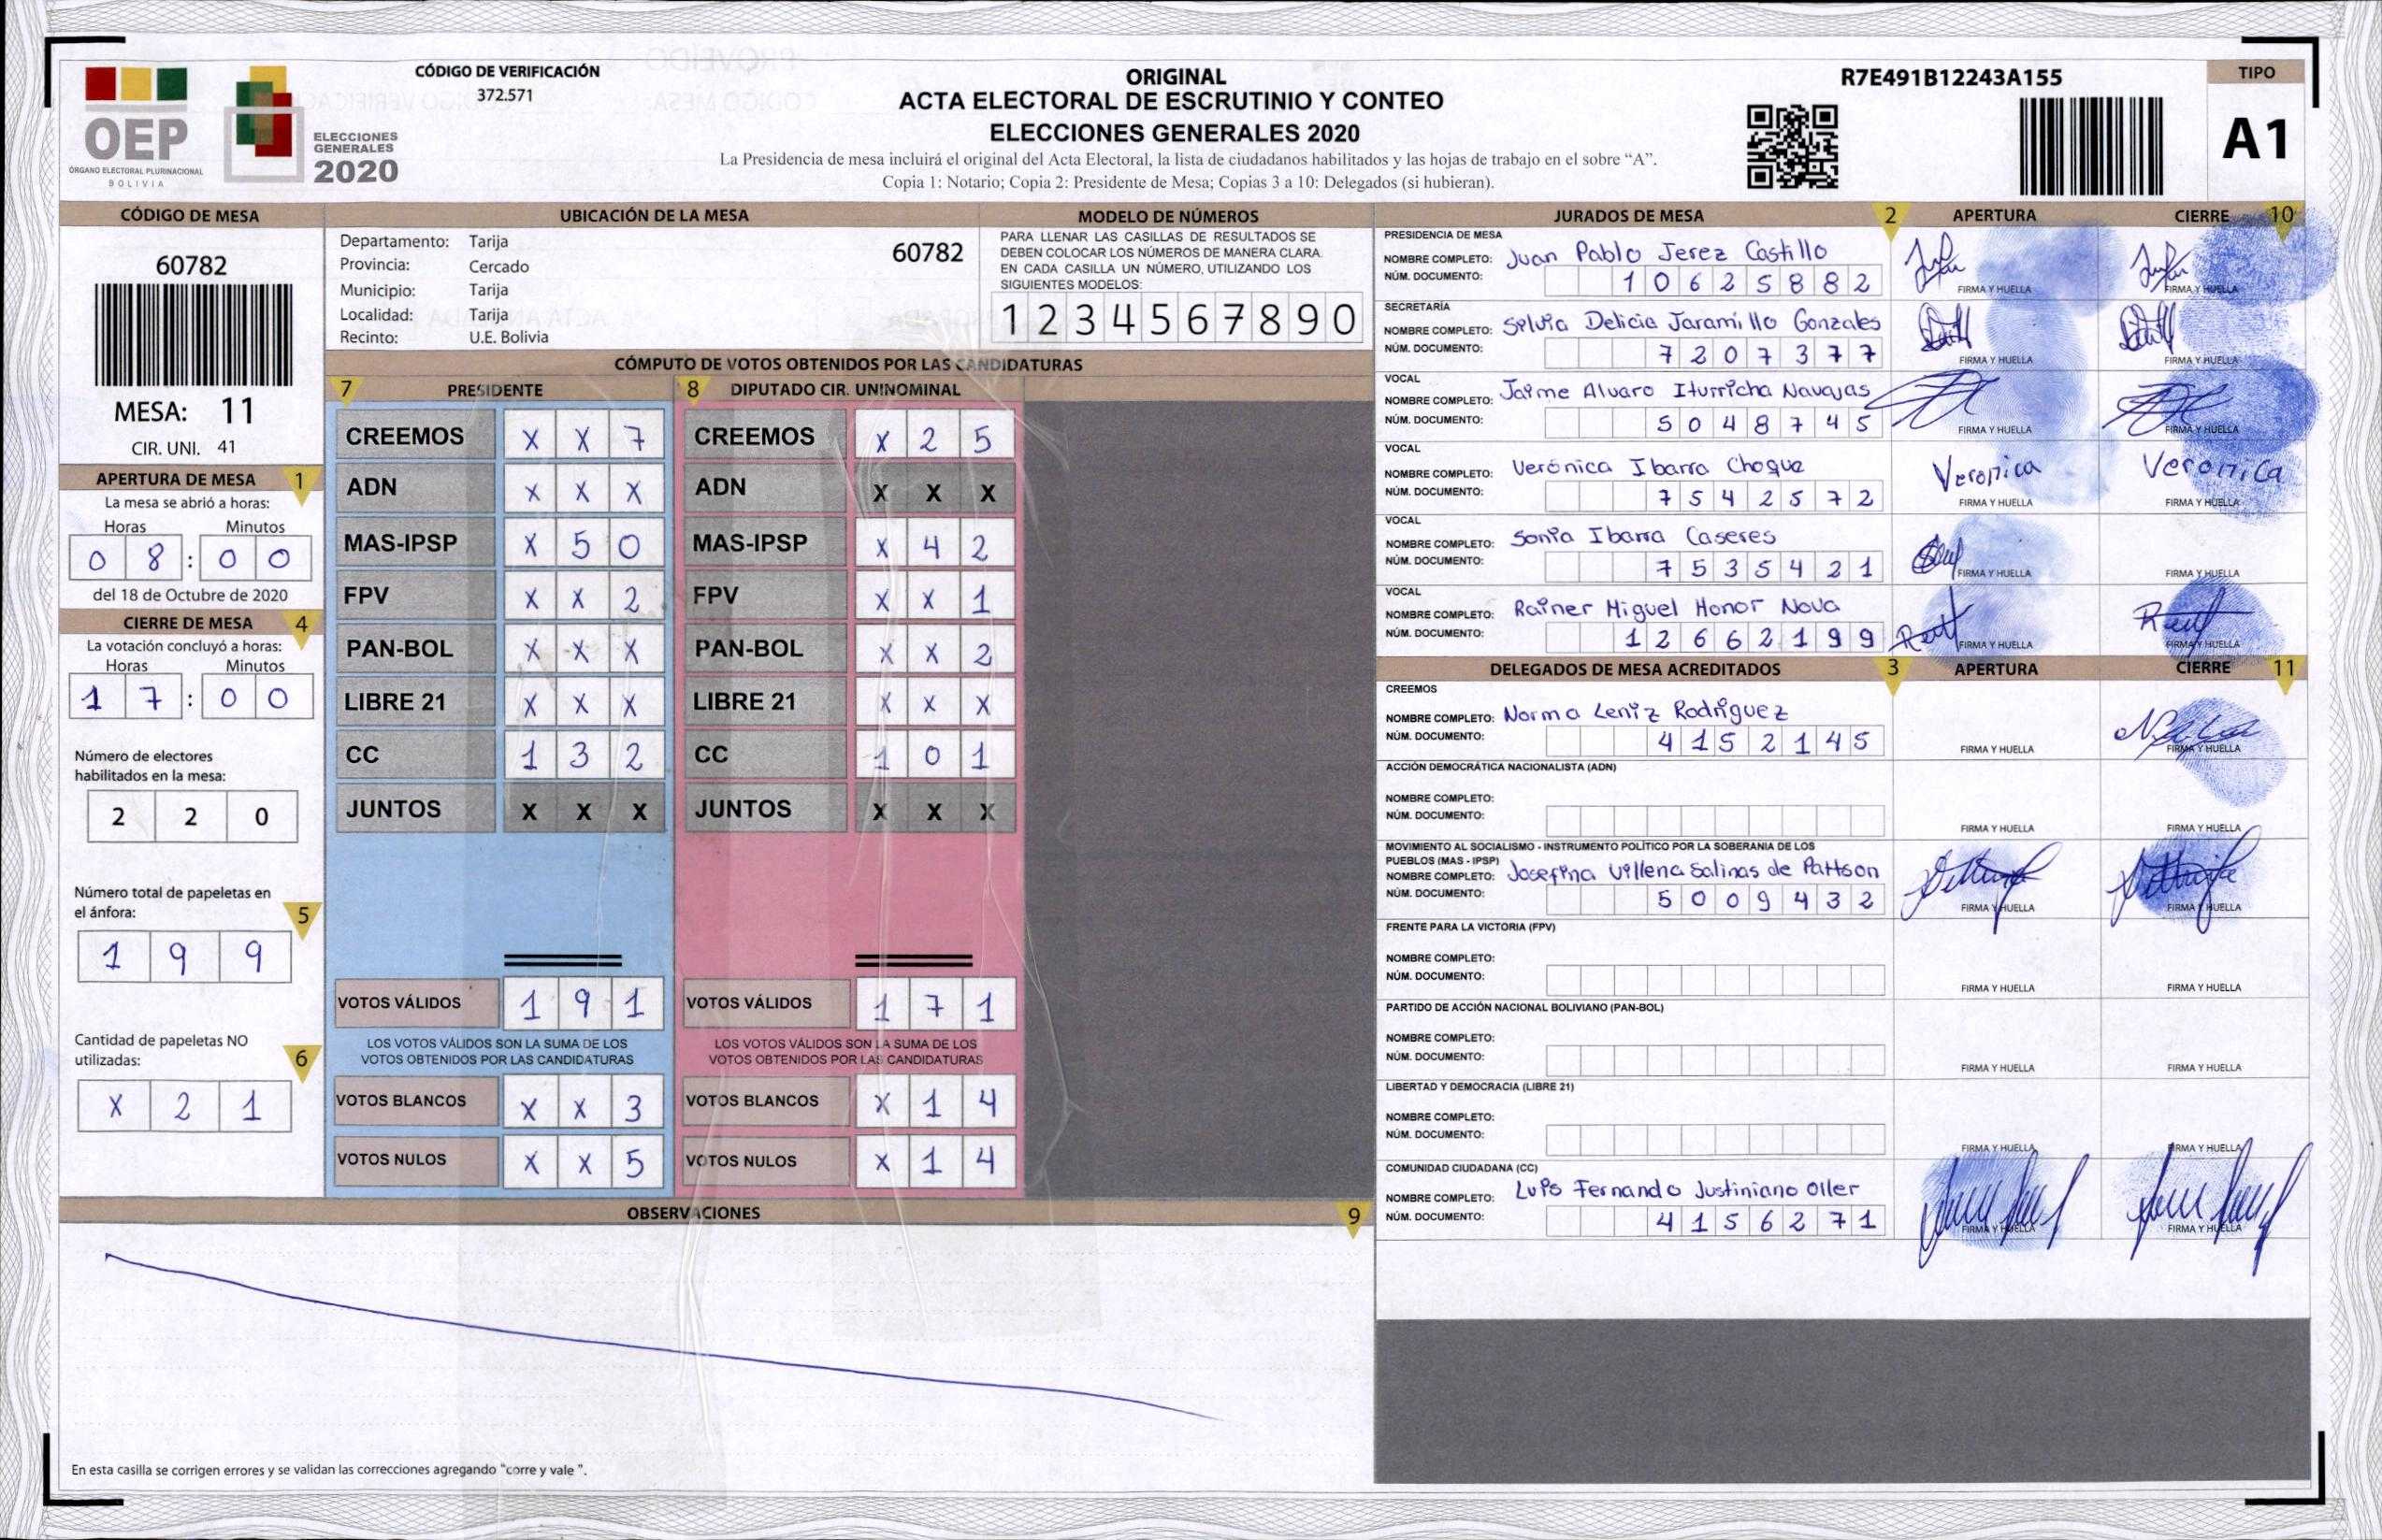 CÓDIGO DE VERIFICACIÓN
372.571
OEP
ÓRGANO ELECTORAL PLURINACIONAL
BOLIVIA
ELECCIONES
GENERALES
2020
ORIGINAL
ACTA ELECTORAL DE ESCRUTINIO Y CONTEO
ELECCIONES GENERALES 2020
La Presidencia de mesa incluirá el original del Acta Electoral, la lista de ciudadanos habilitados y las hojas de trabajo en el sobre “A”.
Copia 1: Notario; Copia 2: Presidente de Mesa; Copias 3 a 10: Delegados (si hubieran).
R7E491B12243A155
TIPO
A1
CÓDIGO DE MESA
60782
MESA: 11
CIR. UNI. 41
APERTURA DE MESA 1
La mesa se abrió a horas:
Horas Minutos
0 8 : 0 0
del 18 de Octubre de 2020
CIERRE DE MESA 4
La votación concluyó a horas:
Horas Minutos
1 7 : 0 0
Número de electores
habilitados en la mesa:
2 2 0
Número total de papeletas en
el ánfora: 5
1 9 9
Cantidad de papeletas NO
utilizadas: 6
X 2 1
UBICACIÓN DE LA MESA
Departamento: Tarija
Provincia: Cercado
Municipio: Tarija
Localidad: Tarija
Recinto: U.E. Bolivia
60782
MODELO DE NÚMEROS
PARA LLENAR LAS CASILLAS DE RESULTADOS SE
DEBEN COLOCAR LOS NÚMEROS DE MANERA CLARA.
EN CADA CASILLA UN NÚMERO, UTILIZANDO LOS
SIGUIENTES MODELOS:
1 2 3 4 5 6 7 8 9 0
CÓMPUTO DE VOTOS OBTENIDOS POR LAS CANDIDATURAS
7 PRESIDENTE
CREEMOS X X 7
ADN X X X
MAS-IPSP X 5 0
FPV X X 2
PAN-BOL X X X
LIBRE 21 X X X
CC 1 3 2
JUNTOS X X X
VOTOS VÁLIDOS 1 9 1
LOS VOTOS VÁLIDOS SON LA SUMA DE LOS
VOTOS OBTENIDOS POR LAS CANDIDATURAS
VOTOS BLANCOS X X 3
VOTOS NULOS X X 5
8 DIPUTADO CIR. UNINOMINAL
CREEMOS X 2 5
ADN X X X
MAS-IPSP X 4 2
FPV X X 1
PAN-BOL X X 2
LIBRE 21 X X X
CC 1 0 1
JUNTOS X X X
VOTOS VÁLIDOS 1 7 1
LOS VOTOS VÁLIDOS SON LA SUMA DE LOS
VOTOS OBTENIDOS POR LAS CANDIDATURAS
VOTOS BLANCOS X 1 4
VOTOS NULOS X 1 4
OBSERVACIONES 9
En esta casilla se corrigen errores y se validan las correcciones agregando “corre y vale ”.
JURADOS DE MESA 2 APERTURA CIERRE 10
PRESIDENCIA DE MESA
NOMBRE COMPLETO: Juan Pablo Jerez Castillo
NÚM. DOCUMENTO: 1 0 6 2 5 8 8 2
FIRMA Y HUELLA FIRMA Y HUELLA
SECRETARÍA
NOMBRE COMPLETO: Sylvia Delicia Jaramillo Gonzales
NÚM. DOCUMENTO: 7 2 0 7 3 7 7
FIRMA Y HUELLA FIRMA Y HUELLA
VOCAL
NOMBRE COMPLETO: Jaime Alvaro Iturricha Navajas
NÚM. DOCUMENTO: 5 0 4 8 7 4 5
FIRMA Y HUELLA FIRMA Y HUELLA
VOCAL
NOMBRE COMPLETO: Verónica Ibarra Choque
NÚM. DOCUMENTO: 7 5 4 2 5 7 2
Veronica Veronica
FIRMA Y HUELLA FIRMA Y HUELLA
VOCAL
NOMBRE COMPLETO: Sonia Ibarra Caseres
NÚM. DOCUMENTO: 7 5 3 5 4 2 1
FIRMA Y HUELLA FIRMA Y HUELLA
VOCAL
NOMBRE COMPLETO: Rainer Miguel Honor Nova
NÚM. DOCUMENTO: 1 2 6 6 2 1 9 9
FIRMA Y HUELLA FIRMA Y HUELLA
DELEGADOS DE MESA ACREDITADOS 3 APERTURA CIERRE 11
CREEMOS
NOMBRE COMPLETO: Norma Leniz Rodriguez
NÚM. DOCUMENTO: 4 1 5 2 1 4 5
FIRMA Y HUELLA FIRMA Y HUELLA
ACCIÓN DEMOCRÁTICA NACIONALISTA (ADN)
NOMBRE COMPLETO:
NÚM. DOCUMENTO:
FIRMA Y HUELLA FIRMA Y HUELLA
MOVIMIENTO AL SOCIALISMO - INSTRUMENTO POLÍTICO POR LA SOBERANIA DE LOS
PUEBLOS (MAS - IPSP)
NOMBRE COMPLETO: Josefina Villena Salinas de Pattson
NÚM. DOCUMENTO: 5 0 0 9 4 3 2
FIRMA Y HUELLA FIRMA Y HUELLA
FRENTE PARA LA VICTORIA (FPV)
NOMBRE COMPLETO:
NÚM. DOCUMENTO:
FIRMA Y HUELLA FIRMA Y HUELLA
PARTIDO DE ACCIÓN NACIONAL BOLIVIANO (PAN-BOL)
NOMBRE COMPLETO:
NÚM. DOCUMENTO:
FIRMA Y HUELLA FIRMA Y HUELLA
LIBERTAD Y DEMOCRACIA (LIBRE 21)
NOMBRE COMPLETO:
NÚM. DOCUMENTO:
FIRMA Y HUELLA FIRMA Y HUELLA
COMUNIDAD CIUDADANA (CC)
NOMBRE COMPLETO: Luis Fernando Justiniano Oller
NÚM. DOCUMENTO: 4 1 5 6 2 7 1
FIRMA Y HUELLA FIRMA Y HUELLA